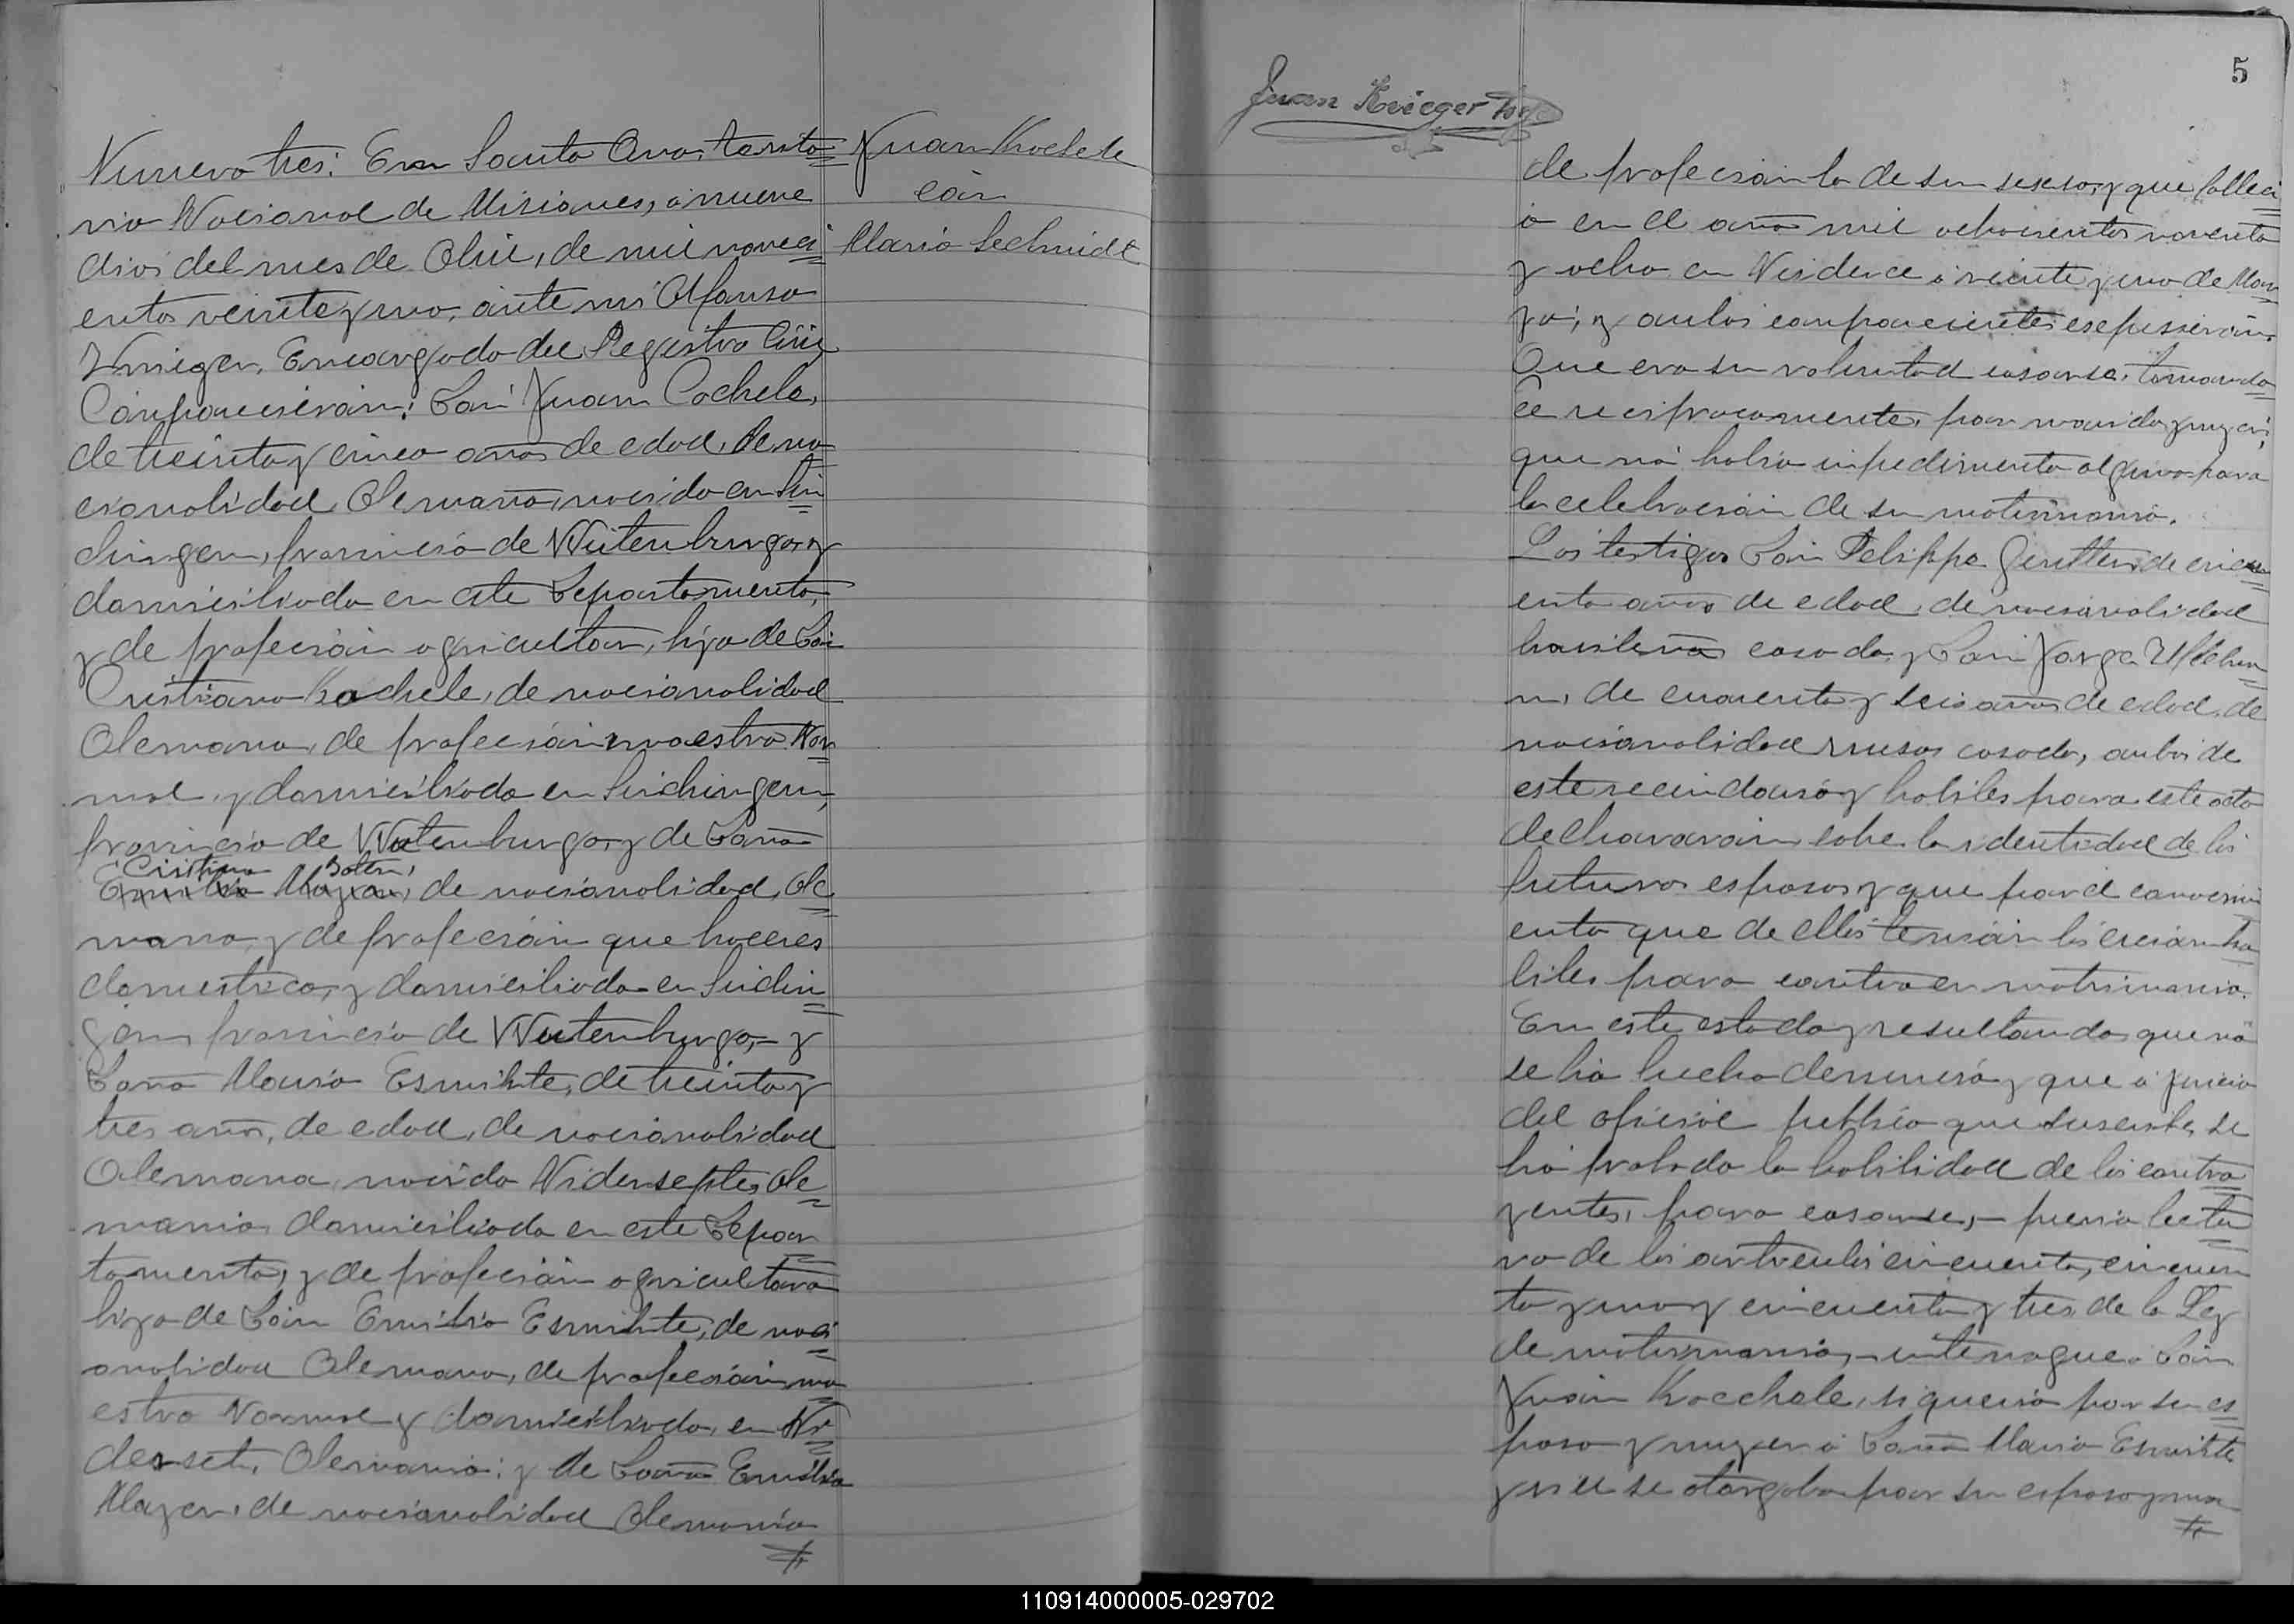 Numero tres: En Santa Ana, territo
rio Nacional de Misiones, á nueve
dias del mes de Abril, de mil noveci
entos veinte y uno, ante mi Alfonso
Encargado del Registro Civil
Comparecieron: Don Juan Cochele,
de treinta y cinco años de edad, de na
cionalidad Alemana, nacido en Sin
dingen, provincia de Wutenburgo, y
domiciliado en este Departamento,
y de profecion agricultor, hijo de Don
Cristiano Kochele, de nacionalidad
Alemana, de profecion maestro Nor
mal, y domiciliado en Sindingen,
provincia de Wutenburgo, y de Doña
Cristina
Emilia Mayer, de nacionalidad Ale
mana, y de profecion que haceres
domesticos, y domiciliada en Sindin
gen provincia de Wutenburgo, - y
Doña Maria Esmihte, de treinta y
tres años, de edad, de nacionalidad
Alemana, nacida Nidersepte, Ale
mania, domiciliada en este Depar
tamento, y de profecion agricultora
hija de Don Emilio Esmihte, de naci
onalidad Alemana, de profecion, ma
estro Normal y domiciliado, en Ni
derset, Alemania; y de Doña Emilia
Mayer, de nacionalidad Alemania
Juan Kochele
con
Maria Schmidt
Juan Krieger hijo
5
de profecion la de su sexso, y que falleci
o en el año mil ochocientos noventa
y ocho en á veinte y uno de Mar
zo; y ambos comparecientes espusieron:
Que era su voluntad casarse, tomando
ce reciprocamente, por marido y mujer;
que nó habia impedimento alguno para
la celebracion de su matrimonio.
Los testigos Don Felippe de cincu
enta años de edad, de nacionalidad
brasilera casado, y Don Jorge
n, de cuarenta y seis años de edad, de
nacionalidad rruso, casado, ambos de
este vecindario y habiles para este acto
declararon, sobre la identidad de los
futuros esposos y que por el conocimi
ento que de ellos tenian los creian ha
biles para contraer matrimonio.
En este estado, y resultando, que nó
se há hecho denuncia, y que á juicio
del oficial publico que suscribe, se
há probado la habilidad de los contra
yentes, para casarse, - previa lectu
ra de los articulos cincuenta, cincuen
ta y uno y cincuenta y tres de la Ley
de matrimonio, - interrogue á Don
Juan Kocchele, si queria por su es
posa y mujer á Doña Maria Esmihte
y si el se otorgaba por su esposo y ma